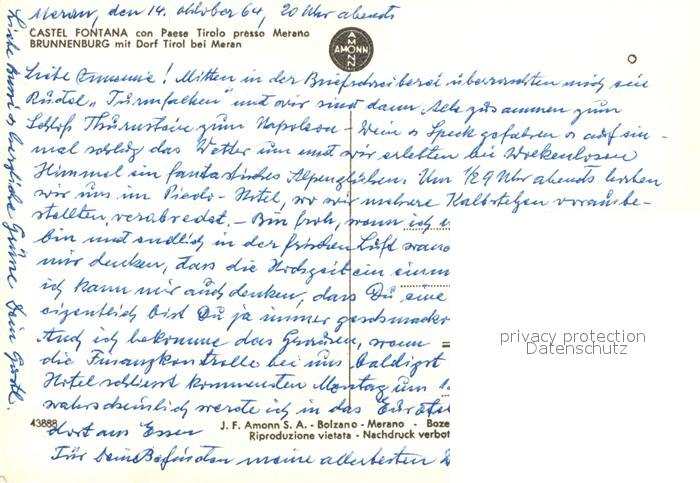 Meran, den 14. oktober 64, 20 Uhr abends
CASTEL FONTANA con Paese Tirolo presso Merano
BRUNNENBURG mit Dorf Tirol bei Meran
AMONN
AMONN
Liebe Annemie! Mitten in der Briefschreiberei überraschten mich ein
Rudel "Turmfalken" und wir sind dann alle zusammen zum
Schloß Thurnstein zum Napoleon-Wein & Speck gefahren & auf ein-
mal schlug das Wetter um und wir erlebten bei Wolkenlosen
Himmel ein fantastisches Alpenglühen. Um 1/2 9 Uhr abends
wir uns im Hotel, wo wir mehrere Kalbstelzen vorausbe-
stellten, verabredet. - Bin froh, wenn ich
bin und endlich in der frischen Luft
mir denken, dass die Hochzeit ein
ich kann mir auch denken, dass Du eine
eigentlich bist Du ja immer
Auch ich bekomme das Grausen, wenn
die Finanzkontrolle bei uns baldigst
Hotel schliesst kommenden Montag um
wahrscheinlich werde ich in das
dort am Essen
Für Dein Befinden meine allerbesten
43888
J. F. Amonn S. A. - Bolzano - Merano - Boze
Riproduzione vietata - Nachdruck verbot
privacy protection
Datenschutz
Liebe & herzliche Grüsse Dein